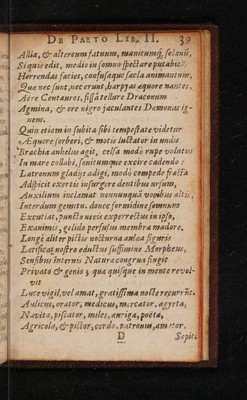 DE PAETO LIB. II. 39
Allia, & alterum fatuum, manicumq́; solanũ,
Si quis edit, medio in somno spectare putabit
Horrendas facies, confusaque sæcla animantum,
Quæ nec sunt, nec erunt, harpyas æquore nantes,
Aere Centauros, fissâ tellure Draconum
Agmina, & ore nigro jaculantes Dæmonas ignem.
Quin etiam in subita sibi tempestate videtur
Æquore sorberi, & motis luctator in undis
Brachia anhelus agit, celsa modò rupe volutus
In mare collabi, sonitumque excire cadendo:
Latronum gladijs adigi, modò compede fracta
Adspicit exertis insurgere dentibus ursum,
Auxilium inclamat nonnunquã vocibus altis,
Interdum gemitu. donec formidine somnum
Excutiat, punctò ueéis experrectus in ipso,
Exanimis, gelido perfusus membra madore.
Longè aliter pictis nocturna aulæa figuris
Latificas nostro eductus suffimine Morpheus,
Sensibus internis Naturæ congrua fingit
Privato & genio, quæ quisque in mente revolvit
Luce vigil, vel amat, gratissima nocte recurrũt.
Aulicus, orator, medicus, mercator, agyrta,
Navita, piscator, miles, auriga, poëta,
Agricola, & pictor, cerdo, patronus, amator.
D Sopiti